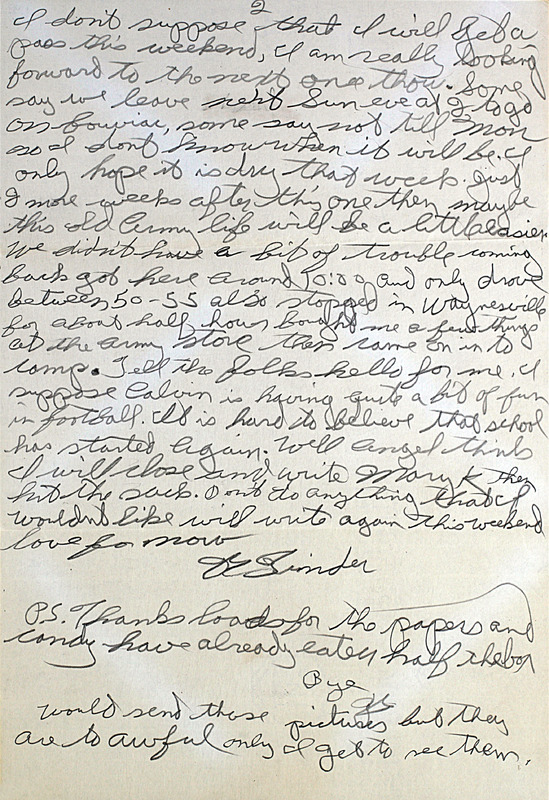 2
I don't suppose that I will get a
pass this weekend, I am really looking
forward to the next one thou. Some
say we leave next Sun eve at 9 to go
on bouviac, some say not till Mon
so I don't know when it will be. I
only hope it is dry that week. Just
more weeks after this one then maybe
this old Army life will be a little easier.
We didn't have a bit of trouble coming
back got here around 10:00 and only drove
between 50-55 also stopped in Waynesville
for about half hour bought me a few things
at the army store then came on in to
camp. Tell the folks hello for me. I
suppose Calvin is having quite a bit of fun
in football. It is hard to believe that school
has started again. Well angel think
I will close and write Mary K then
hit the sack. Don't do anything that I
wouldn't like will write again this weekend
love for now

P.S. Thanks loads for the papers and
candy have already eaten half the box
Bye
would send those pictures but they
are to awful only I get to see them.